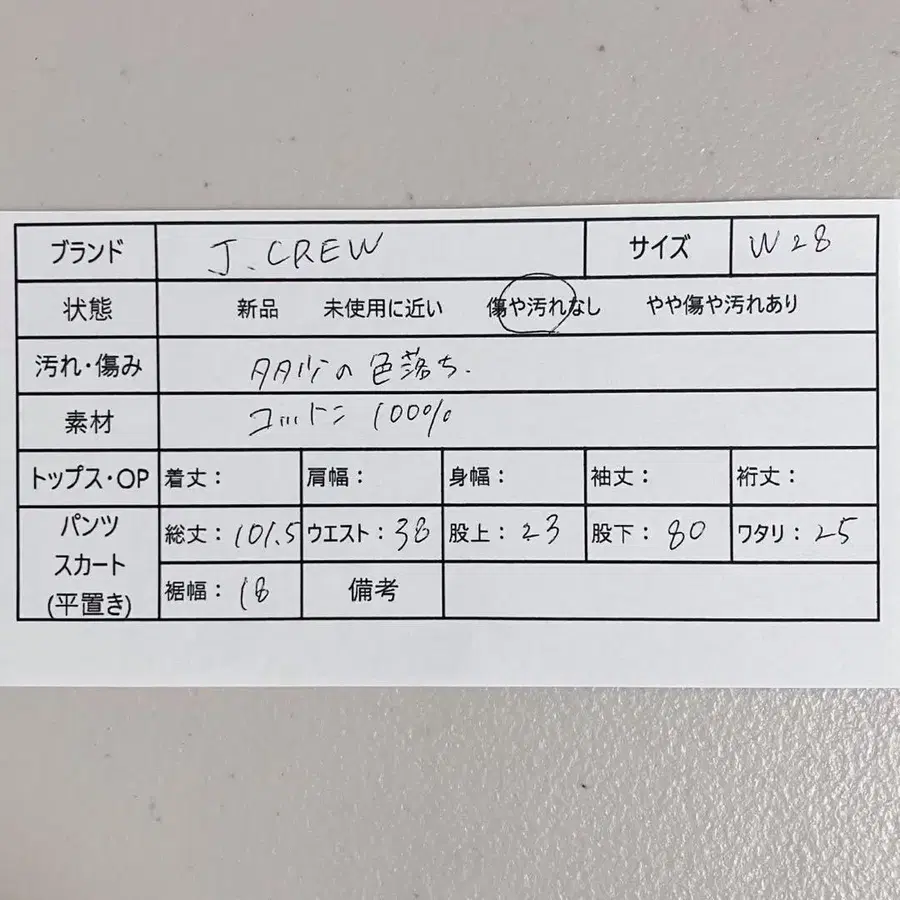 ブランド J.CREW サイズ W28
状態 新品 未使用に近い 傷や汚れなし やや傷や汚れあり
汚れ・傷み の色落ち.
素材 コットン 100%
トップス・OP 着丈： 肩幅： 身幅： 袖丈： 裄丈：
パンツ
スカート
(平置き)
総丈：101.5 ウエスト：38 股上：23 股下：80 ワタリ：25
裾幅：18 備考